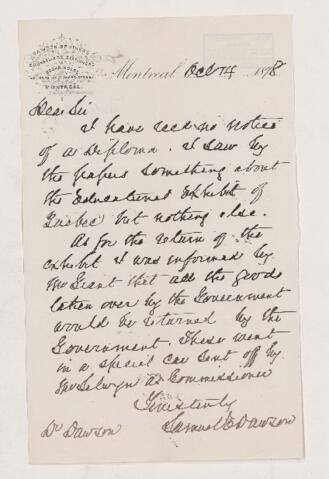 DAWSON BROTHERS
MONTREAL
Montreal Oct 14 1878
Dear Sir
I have recd no notice
of a Diploma. I saw by
the papers something about
the Educational exhibit of
Quebec but nothing else.
As for the return of the
exhibit I was informed by
Mr Grant that all the goods
taken over by the Government
would be returned by the
Government. These went
in a special car sent off by
Mr Selwyn as Commissioner
Yours truly
Samuel E Dawson
Dr Dawson